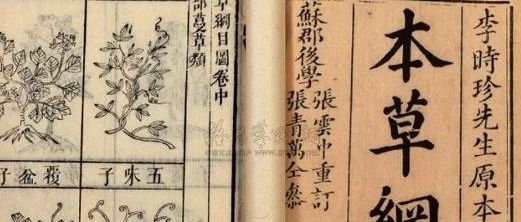 李時珍先生原本
本草綱
蘇郡後學
張雲中重訂
張青萬仝參
草綱目圖卷中
部蔓草類
五味子
覆盆子